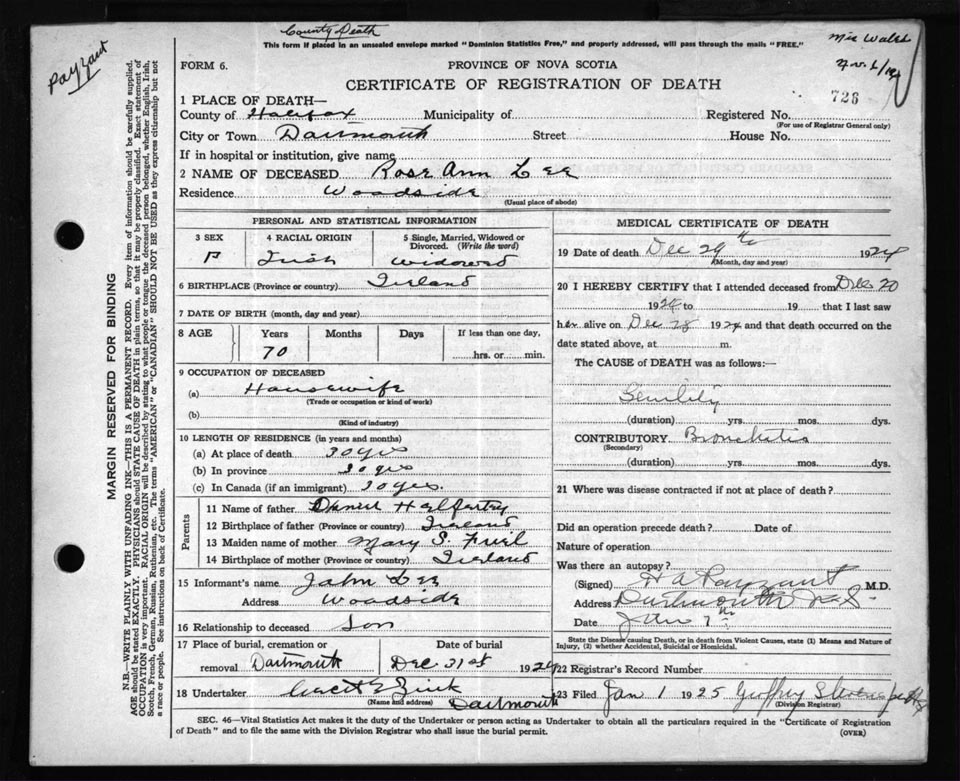 County Death
This form if placed in an unsealed envelope marked "Dominion Statistics Free," and properly addressed, will pass through the mails "FREE."
Payzant
FORM 6.
PROVINCE OF NOVA SCOTIA
CERTIFICATE OF REGISTRATION OF DEATH
728
1 PLACE OF DEATH—
County of Halifax Municipality of Registered No.
(For use of Registrar General only)
City or Town Dartmouth Street House No.
If in hospital or institution, give name
2 NAME OF DECEASED Rose Ann Lee
Residence Woodside
(Usual place of abode)
PERSONAL AND STATISTICAL INFORMATION
3 SEX
F
4 RACIAL ORIGIN
Irish
5 Single, Married, Widowed or Divorced. (Write the word)
Widowed
6 BIRTHPLACE (Province or country) Ireland
7 DATE OF BIRTH (month, day and year)
8 AGE Years Months Days If less than one day,
70 hrs. or min.
9 OCCUPATION OF DECEASED
(a) Housewife
(Trade or occupation or kind of work)
(b)
(Kind of industry)
10 LENGTH OF RESIDENCE (in years and months)
(a) At place of death 30 yrs
(b) In province 30 yrs
(c) In Canada (if an immigrant) 30 yrs.
Parents
11 Name of father
12 Birthplace of father (Province or country) Ireland
13 Maiden name of mother Mary S. Friel
14 Birthplace of mother (Province or country) Ireland
15 Informant's name John Lee
Address Woodside
16 Relationship to deceased Son
17 Place of burial, cremation or Date of burial
removal Dartmouth Dec 31st 1924
18 Undertaker Zink
(Name and address) Dartmouth
MEDICAL CERTIFICATE OF DEATH
19 Date of death Dec 29th 1924
(Month, day and year)
20 I HEREBY CERTIFY that I attended deceased from Dec 20
1924 to 19 that I last saw
her alive on Dec 28 1924 and that death occurred on
date stated above, at m.
The CAUSE of DEATH was as follows:—
Senility
(duration) yrs. mos. dys.
CONTRIBUTORY Bronchitis
(Secondary)
(duration) yrs. mos. dys.
21 Where was disease contracted if not at place of death?
Did an operation precede death? Date of
Nature of operation
Was there an autopsy?
(Signed) H A Payzant M.D.
Address Dartmouth N.S.
Date Jan 1st
State the Disease causing Death, or in death from Violent Causes, state (1) Means and Nature of
Injury, (2) whether Accidental, Suicidal or Homicidal.
22 Registrar's Record Number
23 Filed Jan 1 1925 Geoffrey Stevens
(Division Registrar)
SEC. 46—Vital Statistics Act makes it the duty of the Undertaker or person acting as Undertaker to obtain all the particulars required in the "Certificate of Registration
of Death" and to file the same with the Division Registrar who shall issue the burial permit.
(OVER)
MARGIN RESERVED FOR BINDING
N.B.—WRITE PLAINLY WITH UNFADING INK—THIS IS A PERMANENT RECORD. Every item of information should be carefully supplied.
AGE should be stated EXACTLY. PHYSICIANS should STATE CAUSE OF DEATH in plain terms, so that it may be properly classified. Exact statement of
OCCUPATION is very important. RACIAL ORIGIN will be described by stating to what people or tongue the deceased person belonged, whether English, Irish,
Scotch, French, German, Russian, Ruthenian, etc. The terms "AMERICAN" or "CANADIAN" SHOULD NOT BE USED as they express citizenship but not
a race or people. See instructions on back of Certificate.